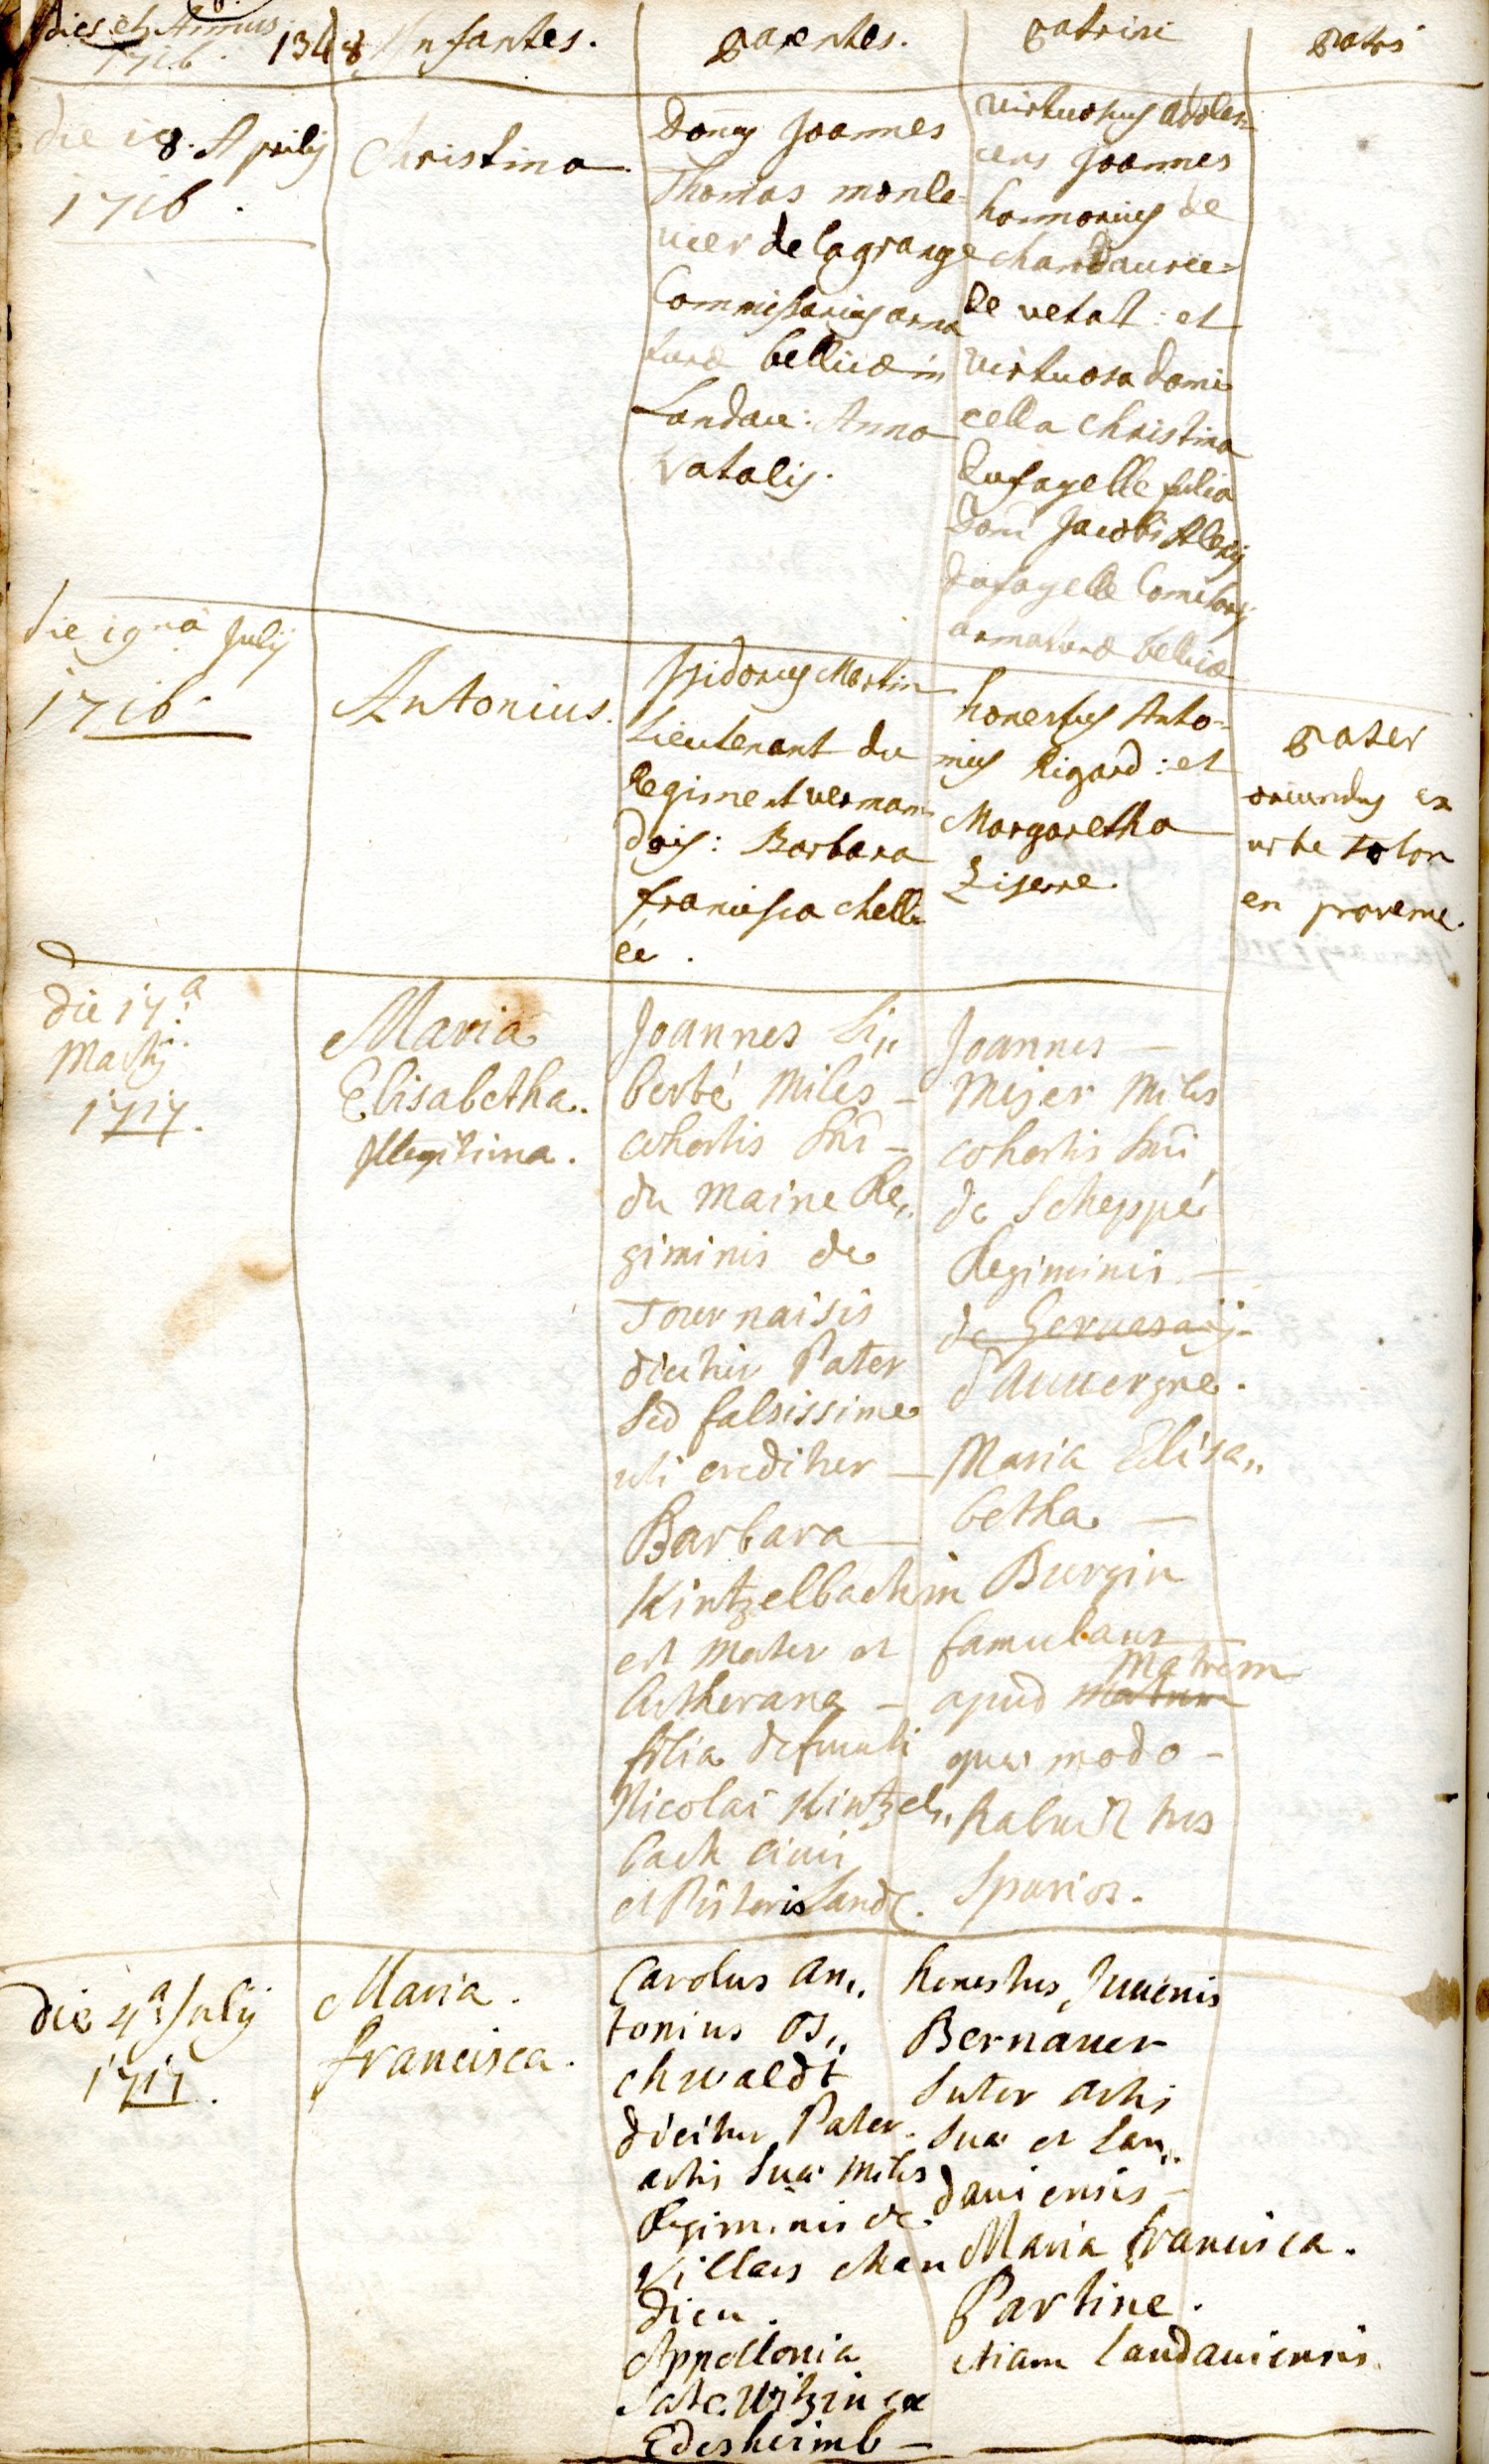 Dies et Annus 1348 Infantes. Parentes. Patrini Patri
1716.
die 18. Aprilis
1716.
Christina
Donus Joannes
Thomas monle=
vier de lagrange
Commissarius arma
turæ bellicæ in
Landau: Anna
Natalis.
virtuosus adoles=
cens Joannes
honnorius de
chandaurie=
de vetat: et
virtuosa domi
cella christina
dufayelle filia
Domi Jacobi Alexii
dufayelle Comissarii
armaturæ bellicæ
die 19na Julij
1716.
Antonius.
Isidorus Martin
Lieutenant du
Regiment verman=
dois: Barbara
francisca chelle
ée.
honestus Anto=
nius Rigard: et
Margaretha
Ziserre.
Pater
oriundus ex
urbe tolon
en provence.
Die 17a
Martij
1717.
Maria
Elisabetha.
Illegitima.
Joannes Li,,
berté Miles –
cohortis Dni –
du Maine Re,,
giminis de
Tournaisis
dicitur Pater
sed falsissime
uti creditur –
Barbara –
Kintzelbachin
est Mater et
Lutherana –
filia defuncti
Nicolai Kintzel,,
bach civis
et Pistoris Land.
Joannes –
Meyer Miles
cohortis Dni
de Scheppé
Regiminis –
de Gervasaij –
d'Auuergne.
Maria Elisa,,
betha –
Burgin
famulans –
Matrem
apud Matrem
quæ modo –
habuit tres
spurios.
Die 4a Julij
1717.
Maria.
francisca.
Carolus An,,
tonius Os,,
chwaldt
dicitur Pater.
artis suæ Miles
Regiminis de
Villars chan
dieu.
Appollonia
Edesheimb –
honestus Juuenis
Bernauer
Sutor artis
suæ et Lan,,
dauiensis –
Maria francisca.
Partine.
etiam landauiensis.